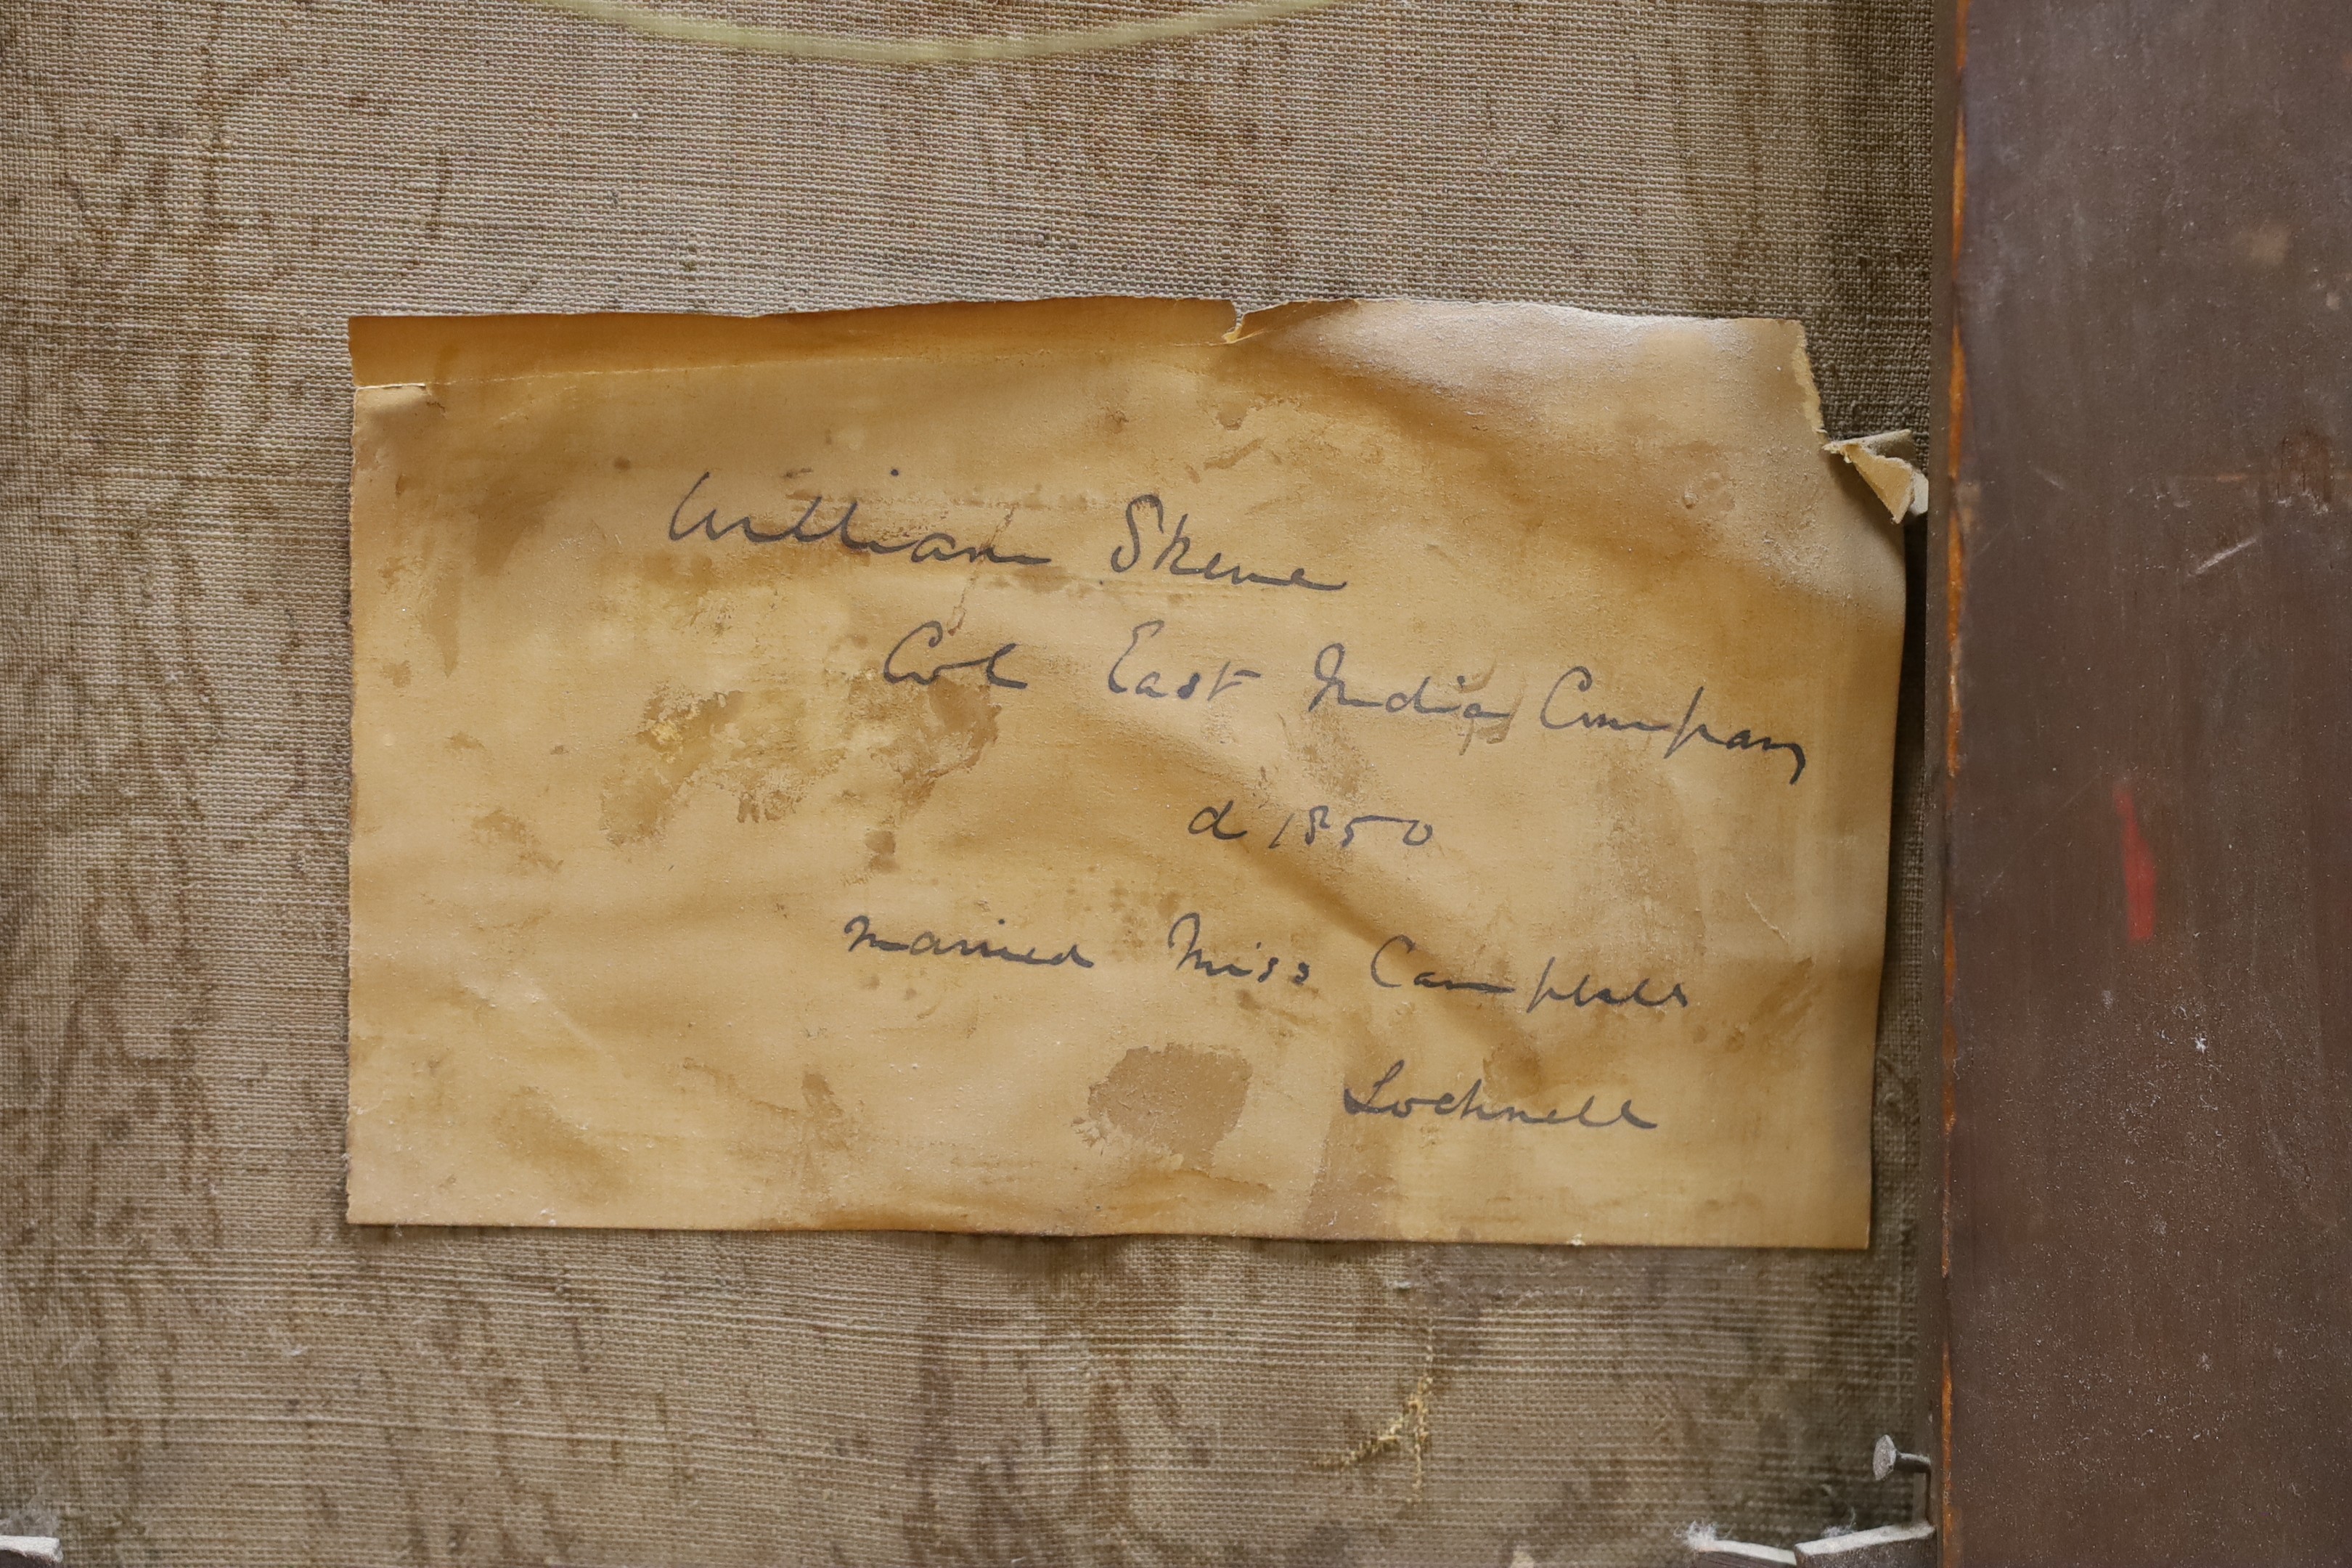 William Skene
Col East India Company
d 1850
married Miss Campbell
Lochnell